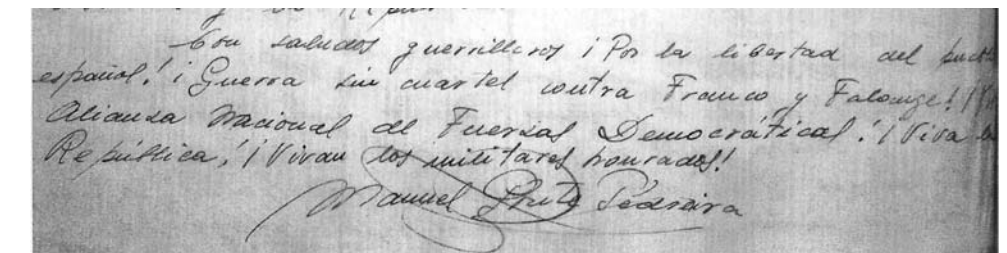 Con saludos guerrilleros ¡Por la libertad del pueblo
español! ¡Guerra sin cuartel contra Franco y Falange! ¡Viva
Alianza Nacional de Fuerzas Democráticas! ¡Viva la
República! ¡Vivan los militares honrados!
Manuel Pedreira